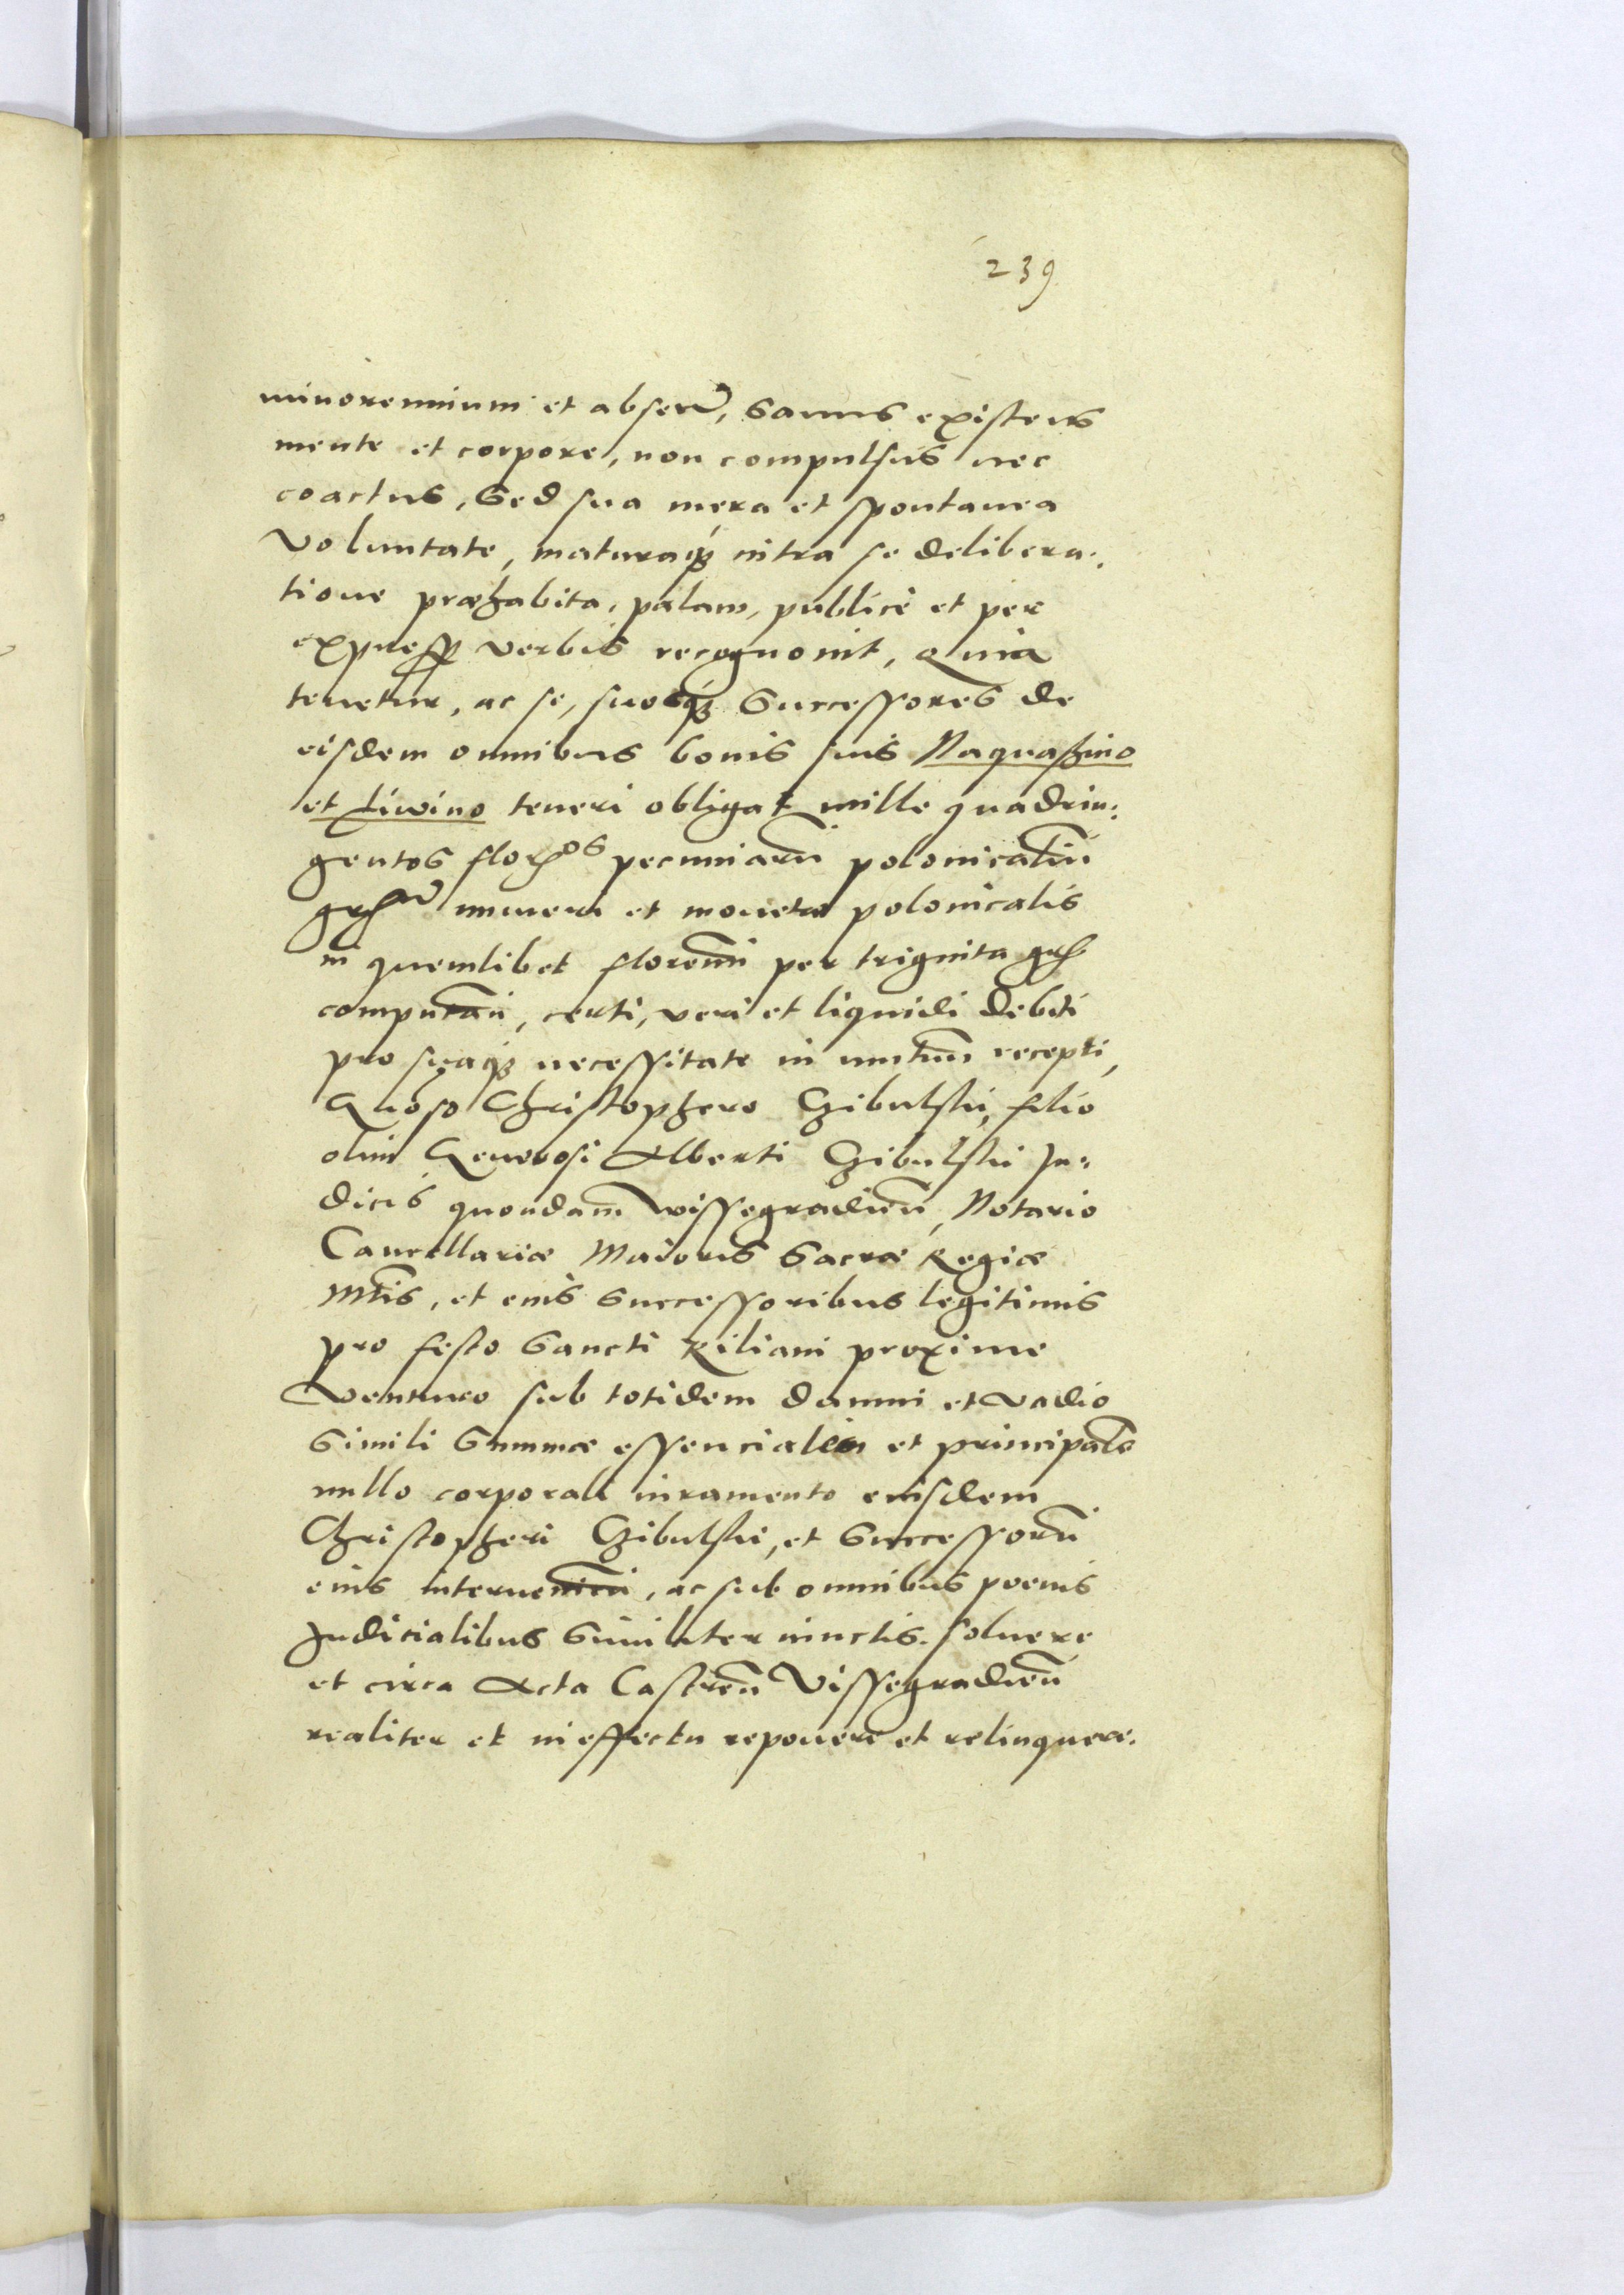 239
minorennium et absen, sanus existens
mente et corpore, non compulsus nec
coactus, Sed sua mera et spontanea
voluntate, maturaq₃ intra se delibera-
tione præhabita, palam, publicè et per
express verbis recognouit, Quia
tenetur, ac se, suosq₃ Successores de
eisdem omnibus bonis suis Naquaszino
et Liwino teneri obligat mille quadrin-
gentos flor^os pecuniarū polonicaliū
gr numeri et monetæ polonicalis
in quemlibet florenū per triginta gr
computañ, certi, veri et liquidi debiti
pro suaq₃ necessitate in mutuū recepti,
Gnoso Christophero Czibulski, filio
olim Generosi Alberti Czibulski Ju-
dicis quondam Wissegradieñ, Notario
Cancellariæ Maioris Sacræ Regiæ
Mtis, et eius Successoribus legitimis
pro festo Sancti Kiliani proxime
venturo sub totidem damni et vadio
Simili Summæ essencialis et principals
nullo corporali iuramento eiusdem
Christopheri Czibulski, et Successorū
eius interuenieñ, ac sub omnibus poenis
Judicialibus Similiter iunctis. soluere
et circa Acta Castreñ Vissegradieñ
realiter et in effectu reponere et relinquere.